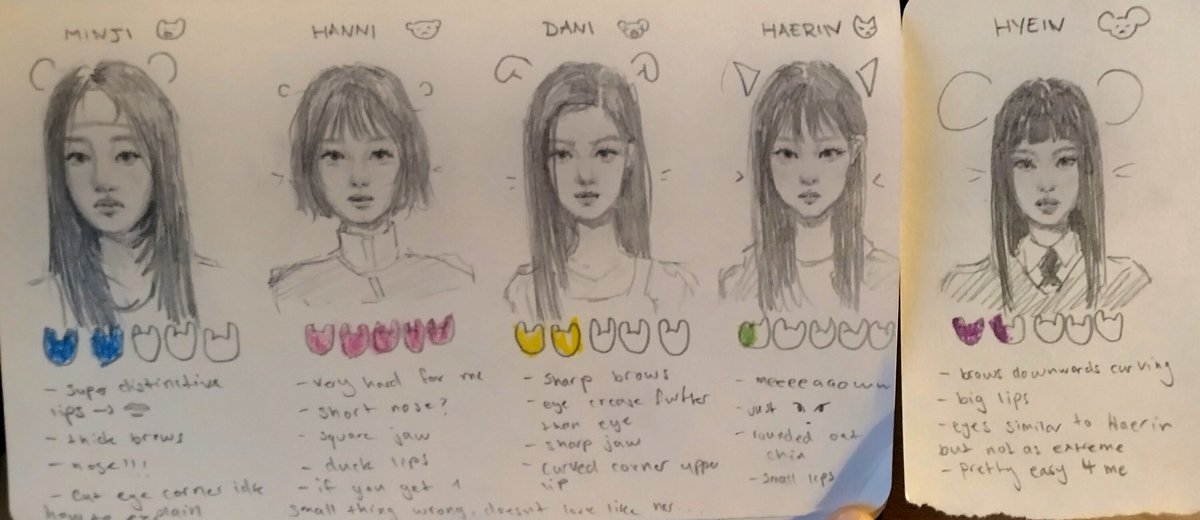 MINJI
- Super distinctive
lips →
- thick brows
- nose!!!
- Cut eye corner idk
how to explain
HANNI
- very hard for me
- short nose?
- square jaw
- duck lips
- if you get 1
small thing wrong, doesnt look like her...
DANI
- Sharp brows
- eye crease further
than eye
- sharp jaw
- Curved corner upper
lip
HAERIN
- meeeeaaowww
- just
- rounded out
chin
- small lips
HYEIN
- brows downwards curving
- big lips
- eyes similar to Haerin
but not as extreme
- pretty easy 4 me